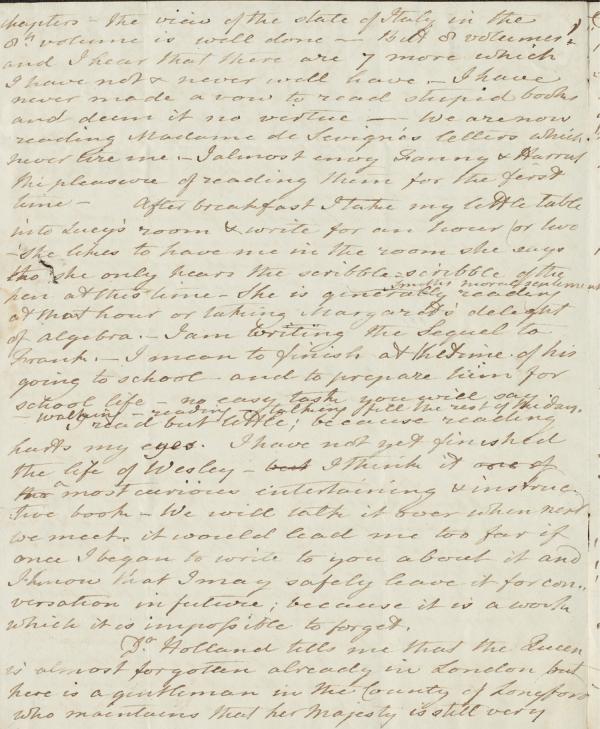 chapters - The view of the state of Italy in the
8th volume is well done - But 8 volumes!
and I hear that there are 7 more which
I have not & never will have. - I have
never made a vow to read stupid books
and deem it no virtue — We are now
reading Madame de Sevigné's letters which
never tire me. - I almost envy Fanny & Harriet
the pleasure of reading them for the first
time - After breakfast I take my little table
into Lucy's room & write for an hour or two
- She likes to have me in the room she says
tho' she only hears the scribble-scribble of the
Smith's moral sentiments
pen at this time - She is generally reading
at that hour or taking Margaret's delight
of algebra. - I am writing the Sequel to
Frank. - I mean to finish at the time of his
going to school - and to prepare him for
school life - no easy task you will say
- walking - reading & talking fill the rest of the day.
I read but little; because reading
hurts my eyes. I have not yet finished
the life of Wesley - but I think it one of
the a most curious entertaining & instruc-
-tive book - We will talk it over when next
we meet. it would lead me too far if
once I began to write to you about it and
I know that I may safely leave it for con-
versation in future; because it is a work
which it is impossible to forget.
Dr. Holland tells me that the Queen
is almost forgotten already in London but
here is a gentleman in the County of Longford
who maintains that her Majesty is still very